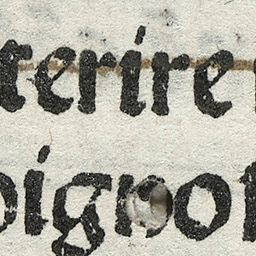 terire
pignot